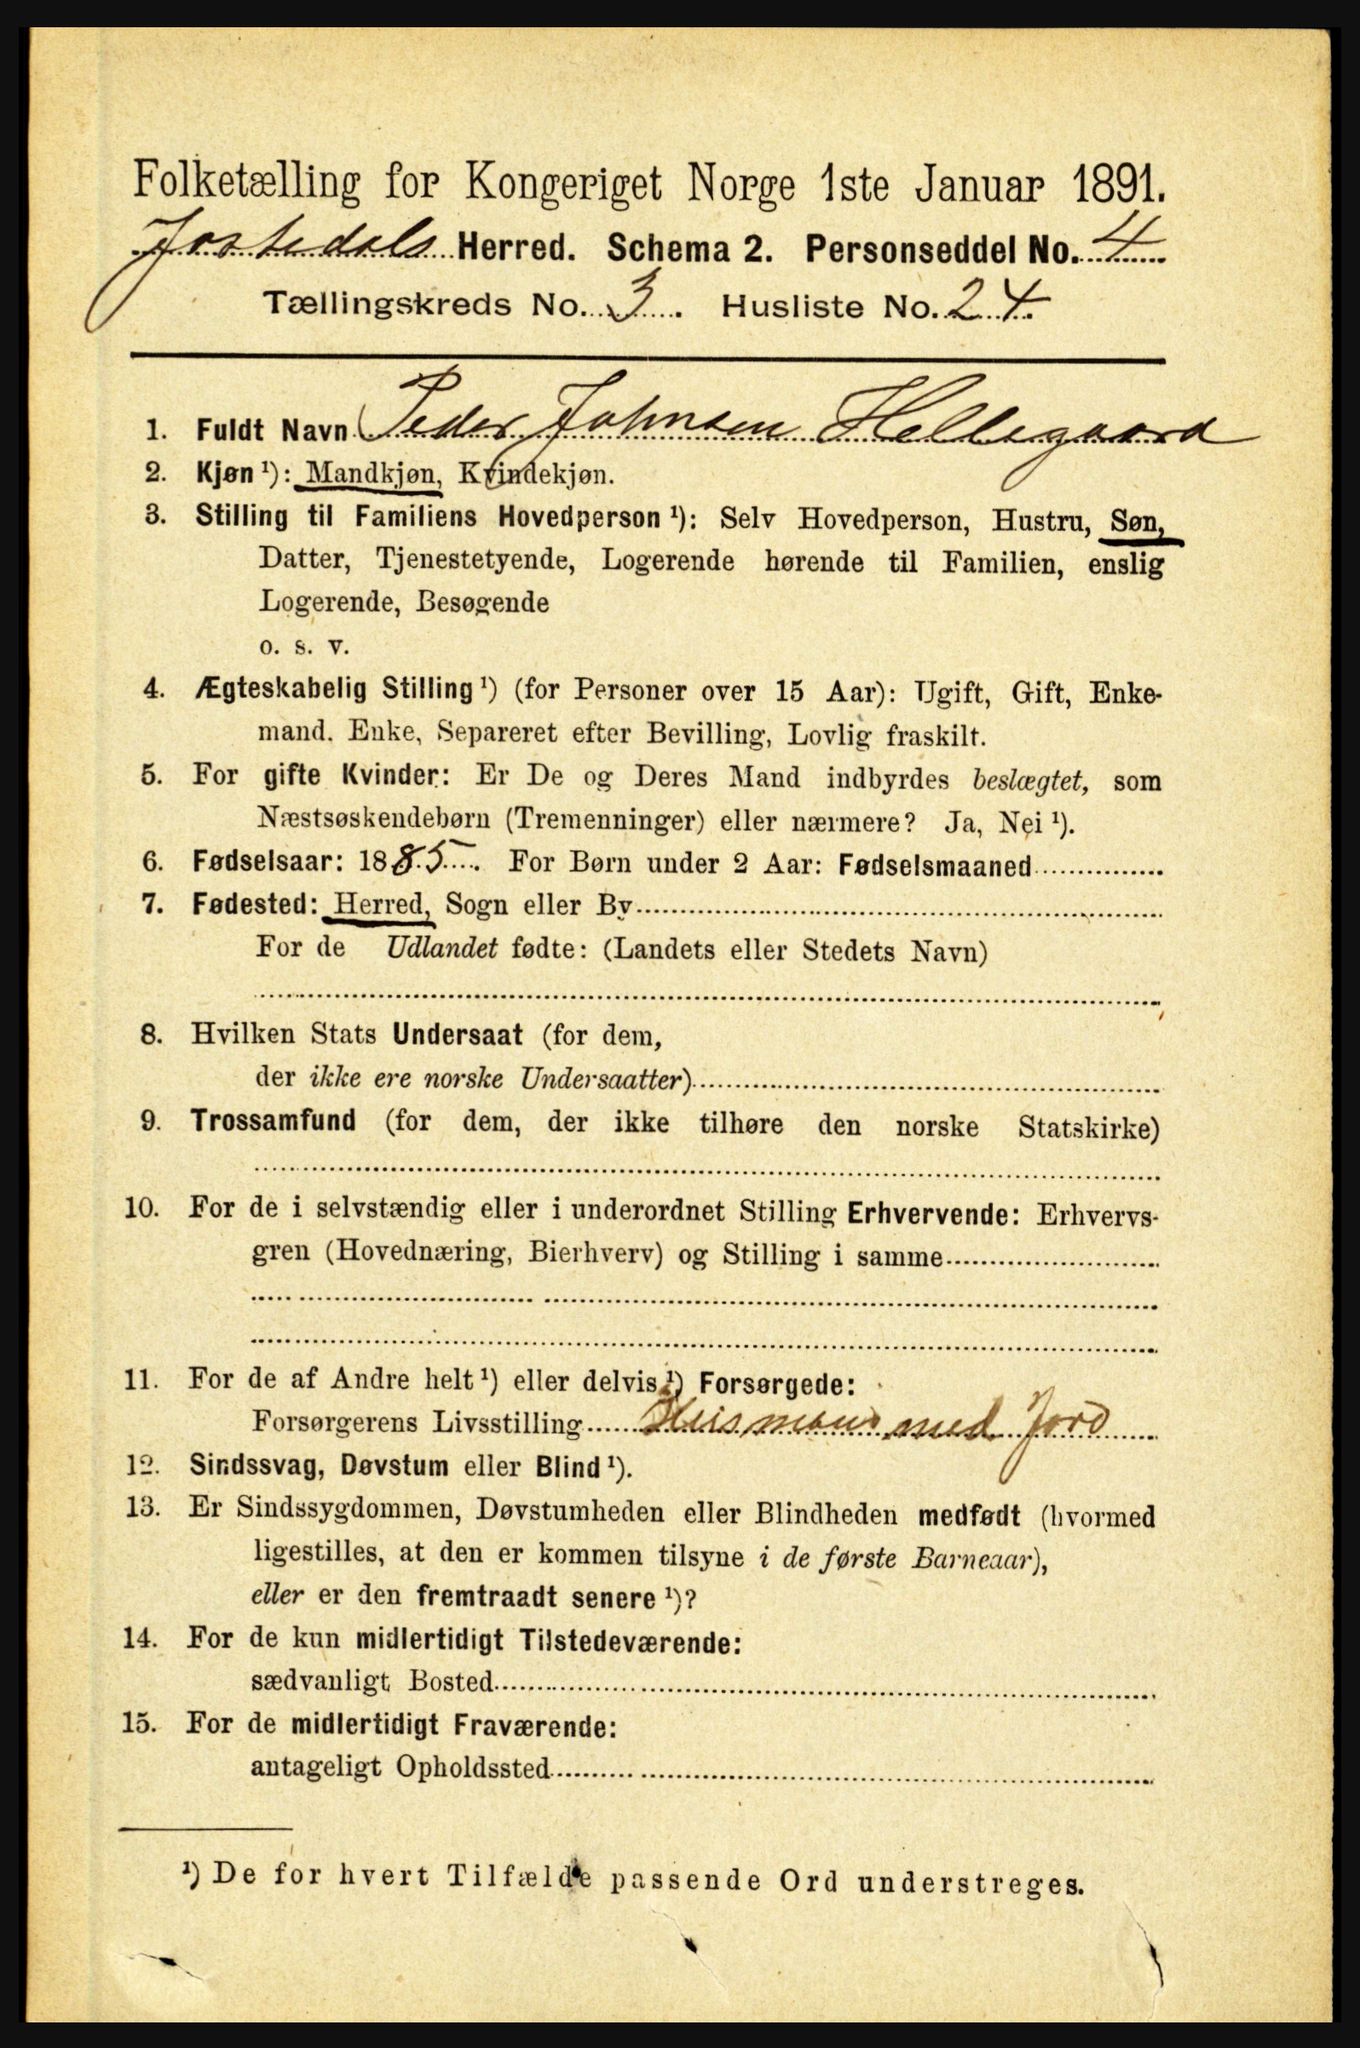 Folketælling for Kongeriget Norge 1ste Januar 1891.
Jostedals Herred. Schema 2. Personseddel No. 4
Tællingskreds No. 3. Husliste No. 24.
1. Fuldt Navn Peder Johnsen Hellegaard
2. Kjøn ¹): Mandkjøn, Kvindekjøn.
3. Stilling til Familiens Hovedperson ¹): Selv Hovedperson, Hustru, Søn,
Datter, Tjenestetyende, Logerende hørende til Familien, enslig
Logerende, Besøgende
o. s. v.
4. Ægteskabelig Stilling ¹) (for Personer over 15 Aar): Ugift, Gift, Enke-
mand. Enke, Separeret efter Bevilling, Lovlig fraskilt.
5. For gifte Kvinder: Er De og Deres Mand indbyrdes beslægtet, som
Næstsøskendebørn (Tremenninger) eller nærmere? Ja, Nei ¹).
6. Fødselsaar: 1885. For Børn under 2 Aar: Fødselsmaaned
7. Fødested: Herred, Sogn eller By
For de Udlandet fødte: (Landets eller Stedets Navn)
8. Hvilken Stats Undersaat (for dem,
der ikke ere norske Undersaatter)
9. Trossamfund (for dem, der ikke tilhøre den norske Statskirke)
10. For de i selvstændig eller i underordnet Stilling Erhvervende: Erhvervs-
gren (Hovednæring, Bierhverv) og Stilling i samme
11. For de af Andre helt ¹) eller delvis ¹) Forsørgede:
Forsørgerens Livsstilling Husmand med Jord
12. Sindssvag, Døvstum eller Blind ¹).
13. Er Sindssygdommen, Døvstumheden eller Blindheden medfødt (hvormed
ligestilles, at den er kommen tilsyne i de første Barneaar),
eller er den fremtraadt senere ¹)?
14. For de kun midlertidigt Tilstedeværende:
sædvanligt Bosted
15. For de midlertidigt Fraværende:
antageligt Opholdssted
¹) De for hvert Tilfælde passende Ord understreges.